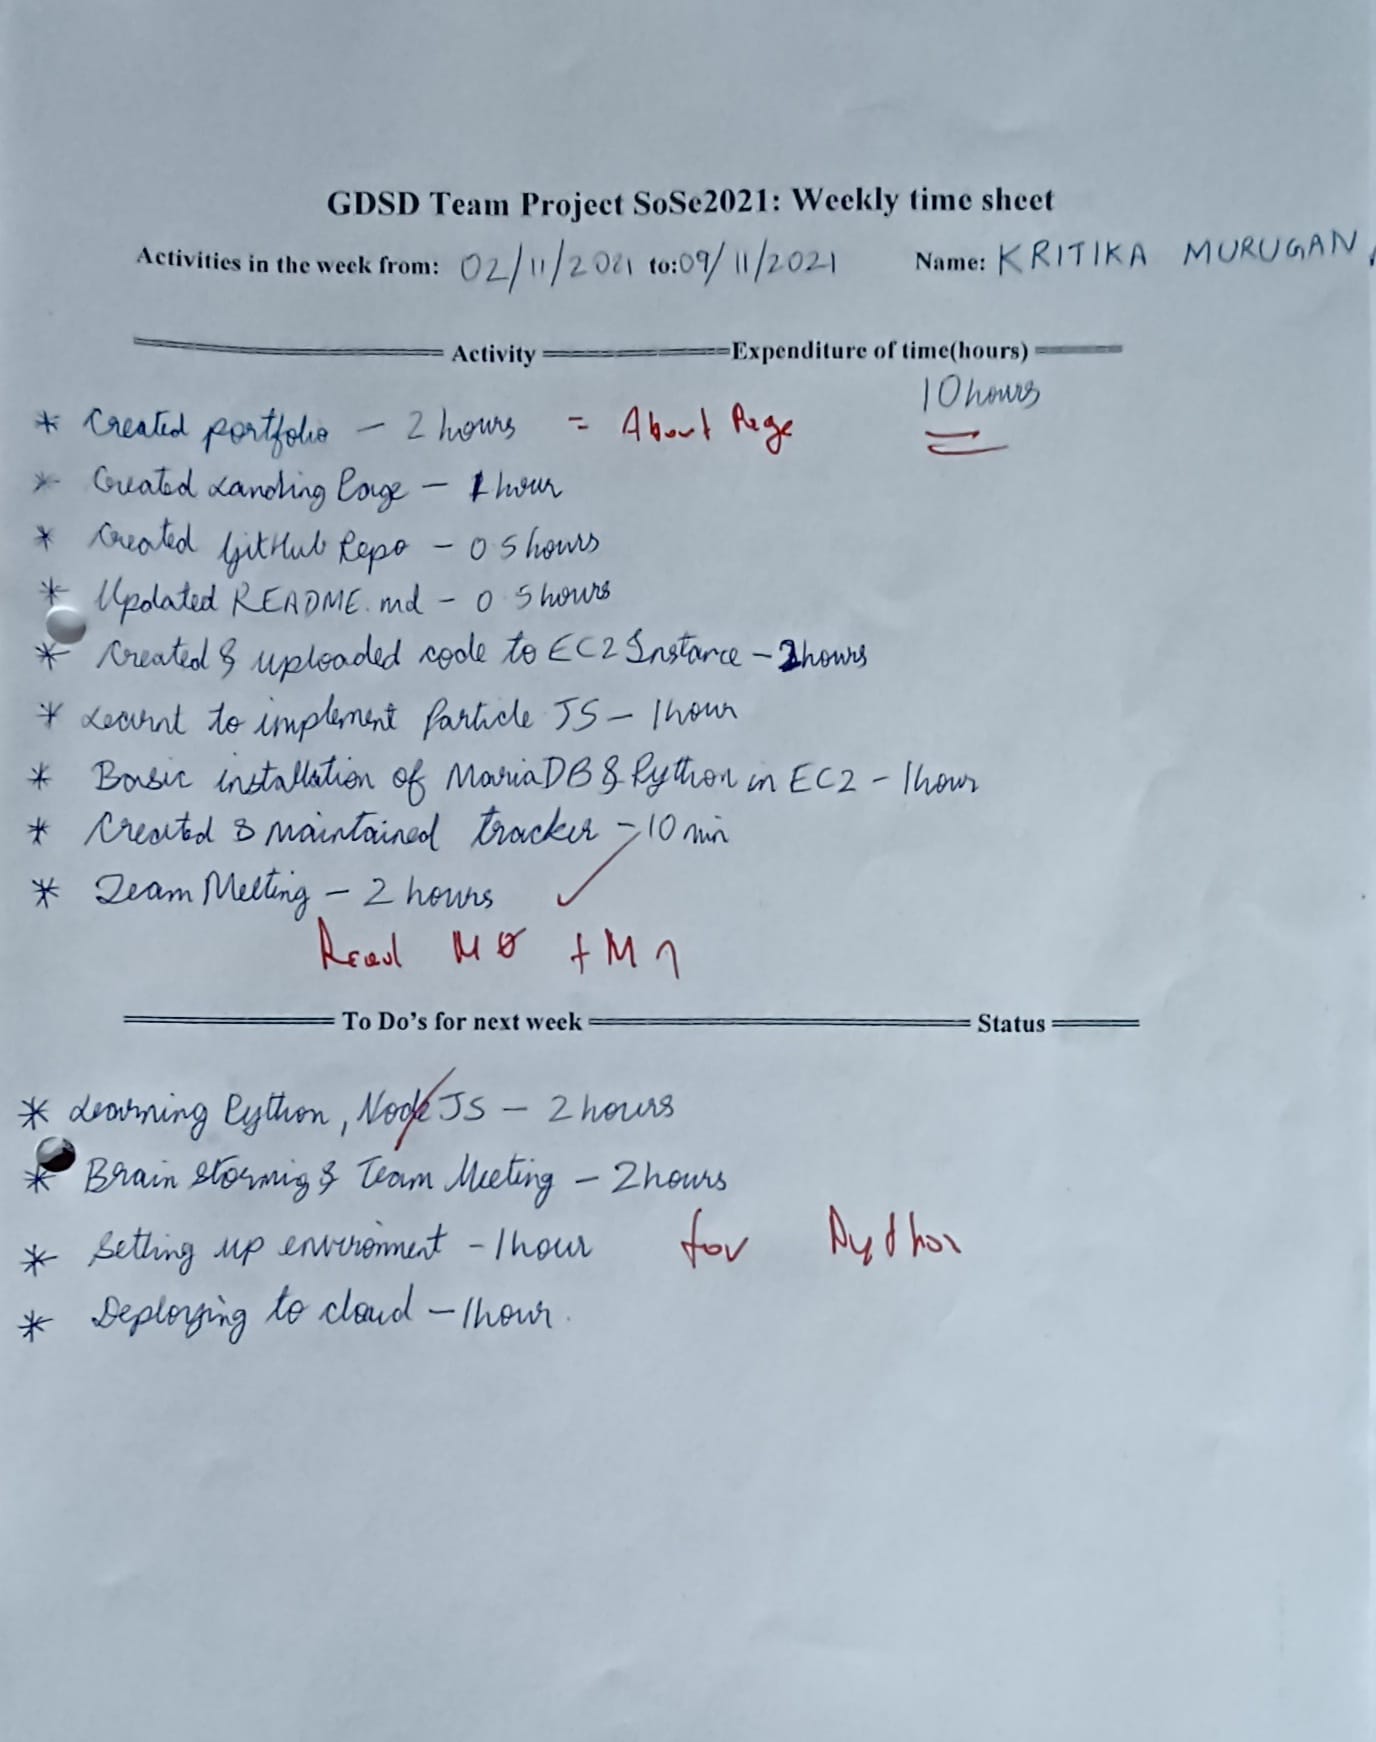 GDSD Team Project SoSe2021: Weekly time sheet
Activities in the week from: 02/11/2021 to: 09/11/2021 Name: KRITIKA MURUGAN
Activity Expenditure of time(hours)
10 hours
* Created portfolio - 2 hours = About Page
* Created Landing Page - 1 hour
* Created GitHub Repo - 0 5 hours
* Updated README.md - 0 5 hours
* Created & uploaded code to EC2 Instance - 2hours
* Learnt to implement Particle JS - 1 hour
* Basic installation of MariaDB & Python in EC2 - 1 hour
* Created & maintained tracker - 10 min
* Team Meeting - 2 hours ✓
Read M0 + M1
To Do's for next week Status
* Learning Python, Node JS - 2 hours
* Brain stormig & Team Meeting - 2 hours
* Setting up environment - 1 hour for Python
* Deploying to cloud - 1 hour.